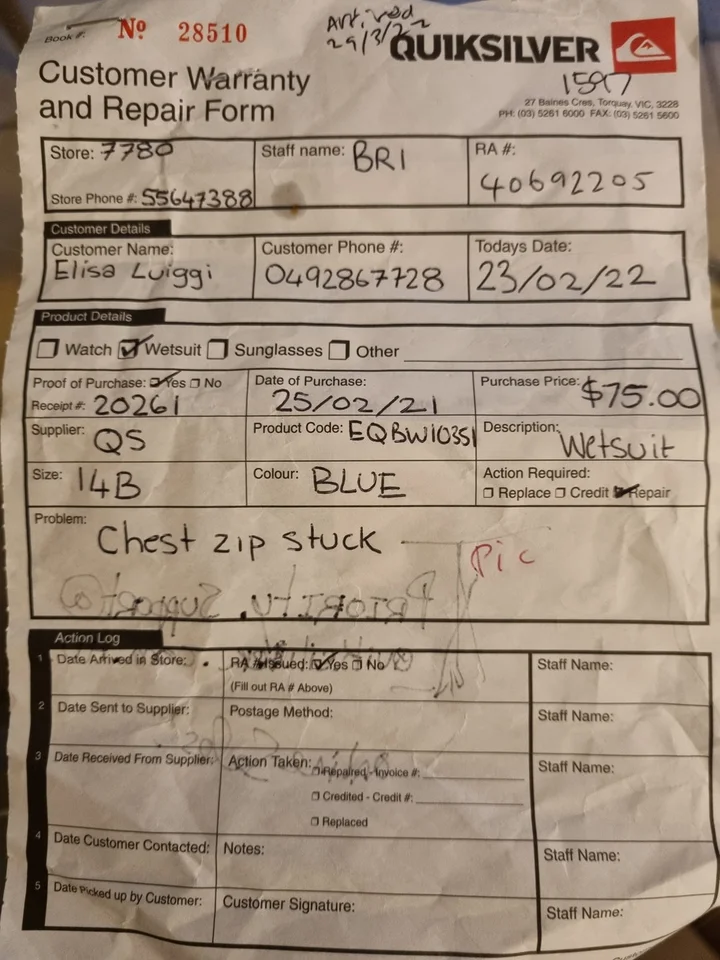 Book #: No 28510
Arrived
29/3/22
QUIKSILVER
1597
Customer Warranty
and Repair Form
27 Baines Cres, Torquay, VIC, 3228
PH: (03) 5261 6000 FAX: (03) 5261 5600
Store: 7780 Staff name: BRI RA #: 40692205
Store Phone #: 55647388
Customer Details
Customer Name: Customer Phone #: Todays Date:
Elisa Luiggi 0492867728 23/02/22
Product Details
Watch Wetsuit Sunglasses Other
Proof of Purchase: Yes No Date of Purchase: Purchase Price: $75.00
Receipt #: 20261 25/02/21
Supplier: QS Product Code: EQBW10351 Description: Wetsuit
Size: 14B Colour: BLUE Action Required:
Replace Credit Repair
Problem: Chest zip stuck
Pic
Action Log
1 Date Arrived in Store: RA # Issued: Yes No Staff Name:
(Fill out RA # Above)
2 Date Sent to Supplier: Postage Method: Staff Name:
3 Date Received From Supplier: Action Taken: Repaired - Invoice #: Staff Name:
Credited - Credit #:
Replaced
4 Date Customer Contacted: Notes: Staff Name:
5 Date Picked up by Customer: Customer Signature: Staff Name: